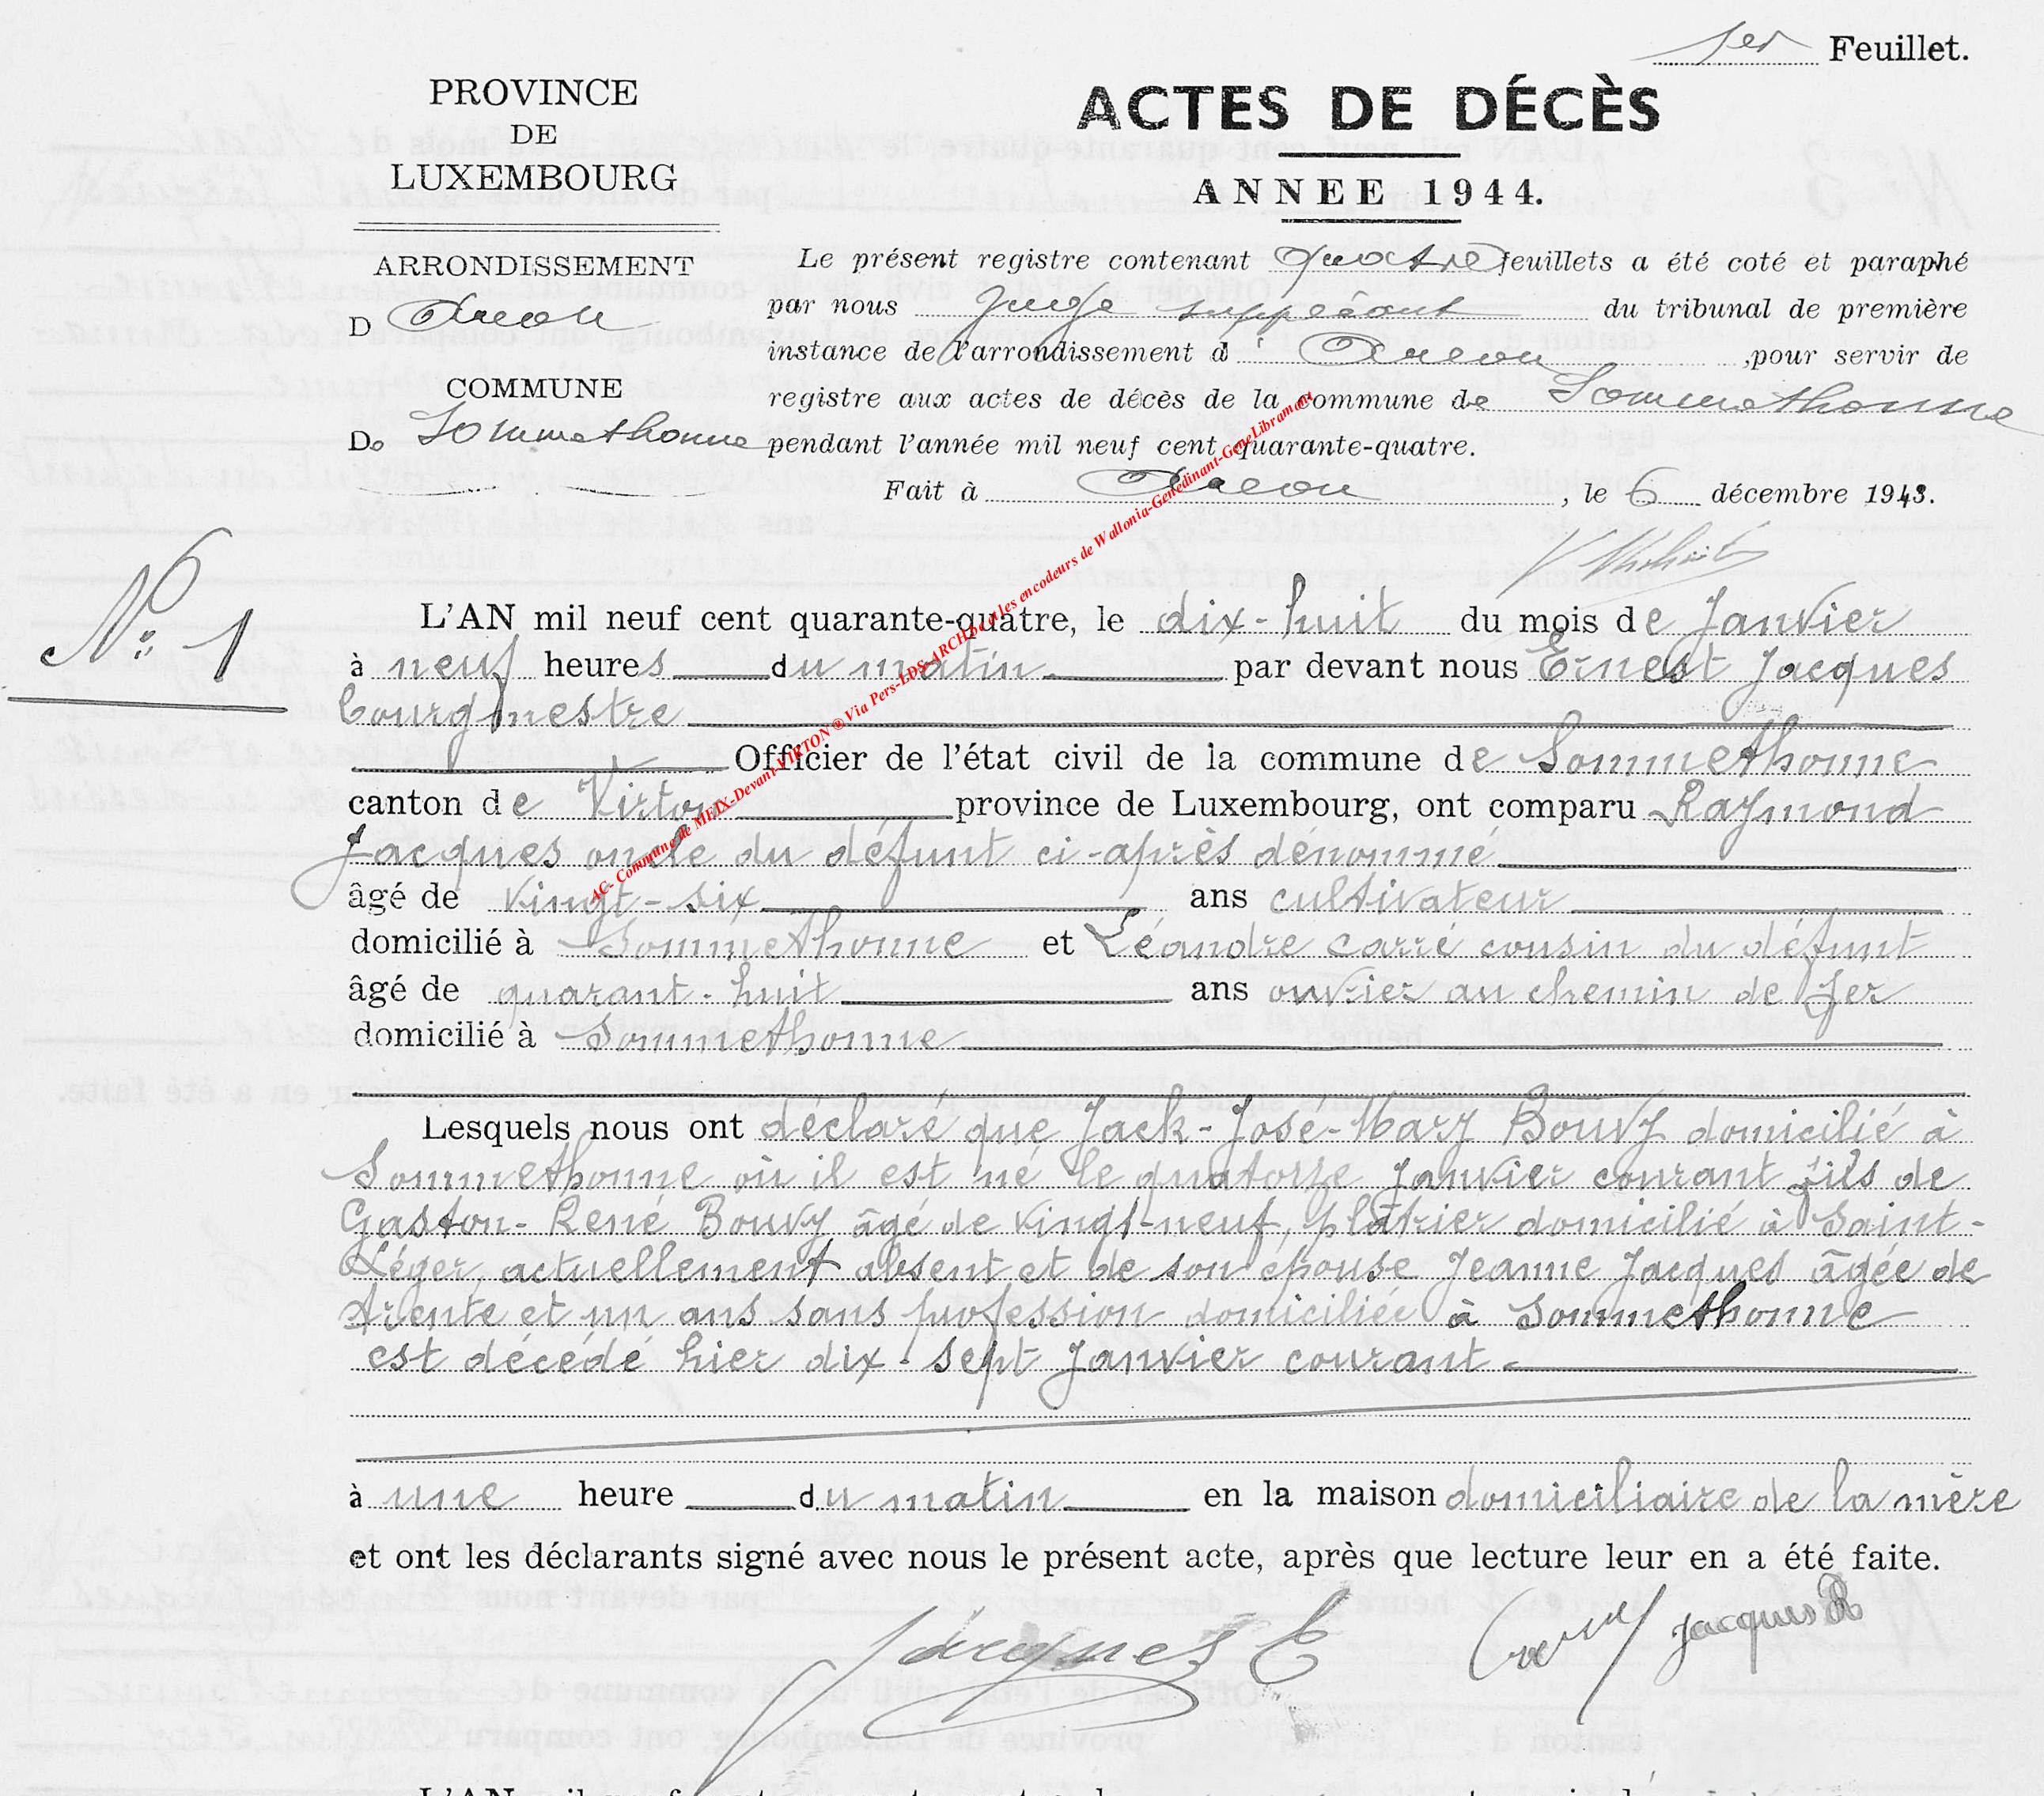 1er Feuillet.
PROVINCE
DE
LUXEMBOURG
ARRONDISSEMENT
D Arlon
COMMUNE
De Sommethonne
ACTES DE DÉCÈS
ANNEE 1944.
Le présent registre contenant quatre feuillets a été coté et paraphé
par nous Juge suppléant du tribunal de première
instance de l'arrondissement d' Arlon ,pour servir de
registre aux actes de décès de la commune de Sommethonne
pendant l'année mil neuf cent quarante-quatre.
Fait à Arlon , le 6 décembre 1943.
N° 1
L'AN mil neuf cent quarante-quatre, le dix-huit du mois de Janvier
à neuf heures du matin par devant nous Ernest Jacques
bourgmestre
Officier de l'état civil de la commune de Sommethonne
canton de Virton province de Luxembourg, ont comparu Raymond
Jacques oncle du défunt ci-après dénommé
âgé de vingt-six ans cultivateur
domicilié à Sommethonne et Léandre Carré cousin du défunt
âgé de quarant-huit ans ouvrier au chemin de fer
domicilié à Sommethonne
Lesquels nous ont déclaré que Jack-José-Mary Bouvy domicilié à
Sommethonne où il est né le quatorze Janvier courant fils de
Gaston-René Bouvy âgé de vingt-neuf, plâtrier domicilié à Saint-
Léger, actuellement absent et de son épouse Jeanne Jacques âgée de
trente et un ans sans profession domiciliée à Sommethonne
est décédé hier dix-sept Janvier courant.
à une heure du matin en la maison domiciliaire de la mère
et ont les déclarants signé avec nous le présent acte, après que lecture leur en a été faite.
Jacques E Carré Jacques R
AC- Commune de MEIX-Devant-VIRTON ® Via Pers-LDS-ARCH.be et les encodeurs de Wallonia-Genedinant-GeneLibramont